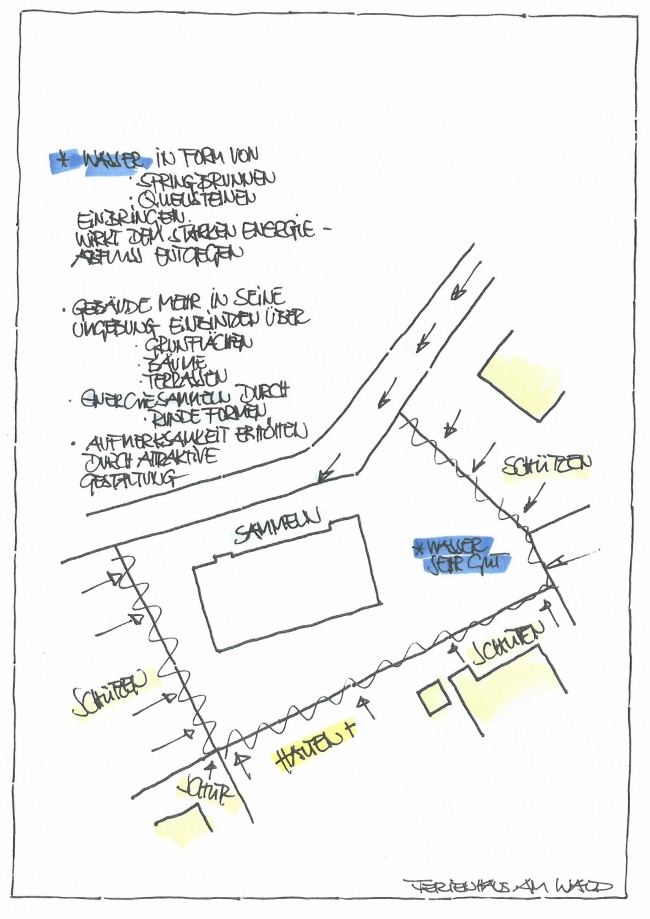 * WASSER IN FORM VON
· SPRINGBRUNNEN
· QUELLSTEINEN
EINBRINGEN.
WIRKT DEM STARKEN ENERGIE-
ABFLUSS ENTGEGEN
· GEBÄUDE MEHR IN SEINE
UMGEBUNG EINBINDEN ÜBER
· GRÜNFLÄCHEN
· BÄUME
· TERRASSEN
· ENERGIESAMMELN DURCH
· RUNDE FORMEN
· AUFMERKSAMKEIT ERHÖHEN
DURCH ATTRAKTIVE
GESTALTUNG
SCHÜTZEN
SAMMELN
* WASSER
SEHR GUT
SCHÜTZEN
SCHÜTZEN
HALTEN +
FERIENHAUS AM WALD